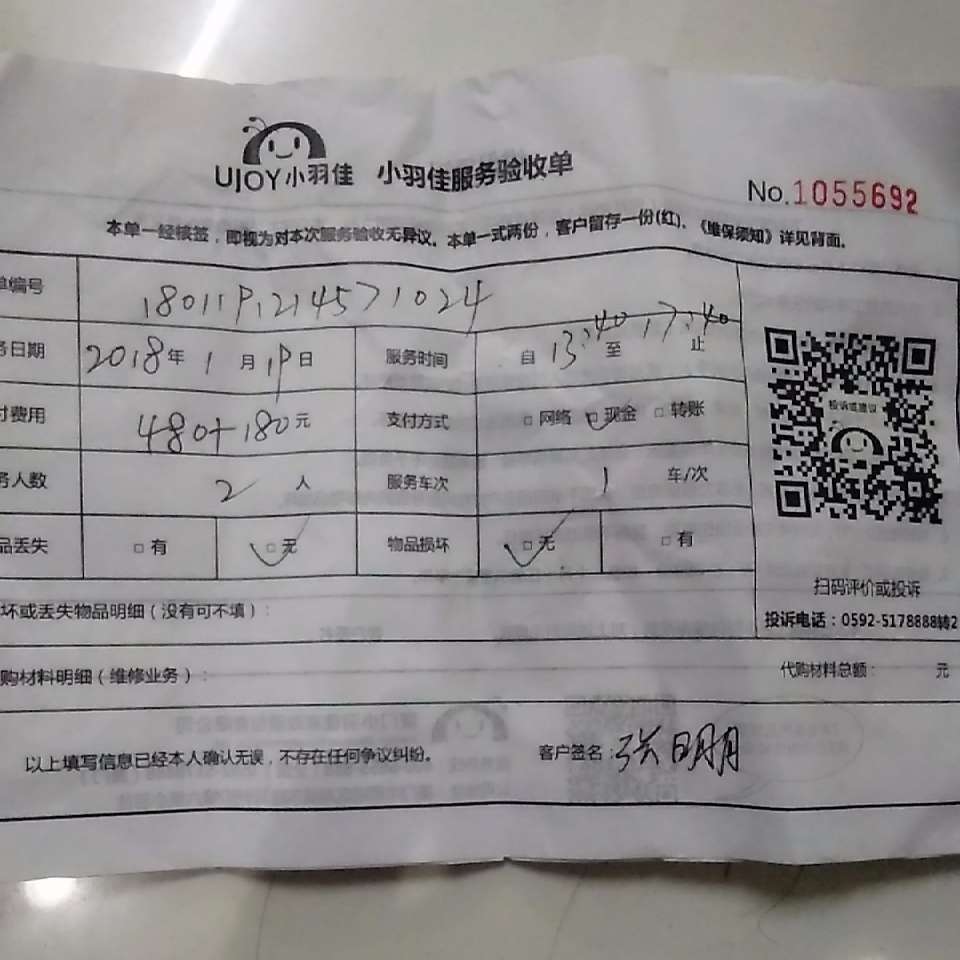 UJOY小羽佳 小羽佳服务验收单
No.1055692
本单一经核签，即视为对本次服务验收无异议。本单一式两份，客户留存一份(红)、《维保须知》详见背面。
单编号 1801191214571024
务日期 2018年1月19日 服务时间 自13:40至17:40止
付费用 480+180元 支付方式 □网络 □现金 □转账
投诉或建议
务人数 2人 服务车次 1 车/次
品丢失 □有 □无 物品损坏 □无 □有
扫码评价或投诉
坏或丢失物品明细(没有可不填)：
投诉电话：0592-5178888转2
购材料明细(维修业务)： 代购材料总额： 元
以上填写信息已经本人确认无误，不存在任何争议纠纷。 客户签名：张明月